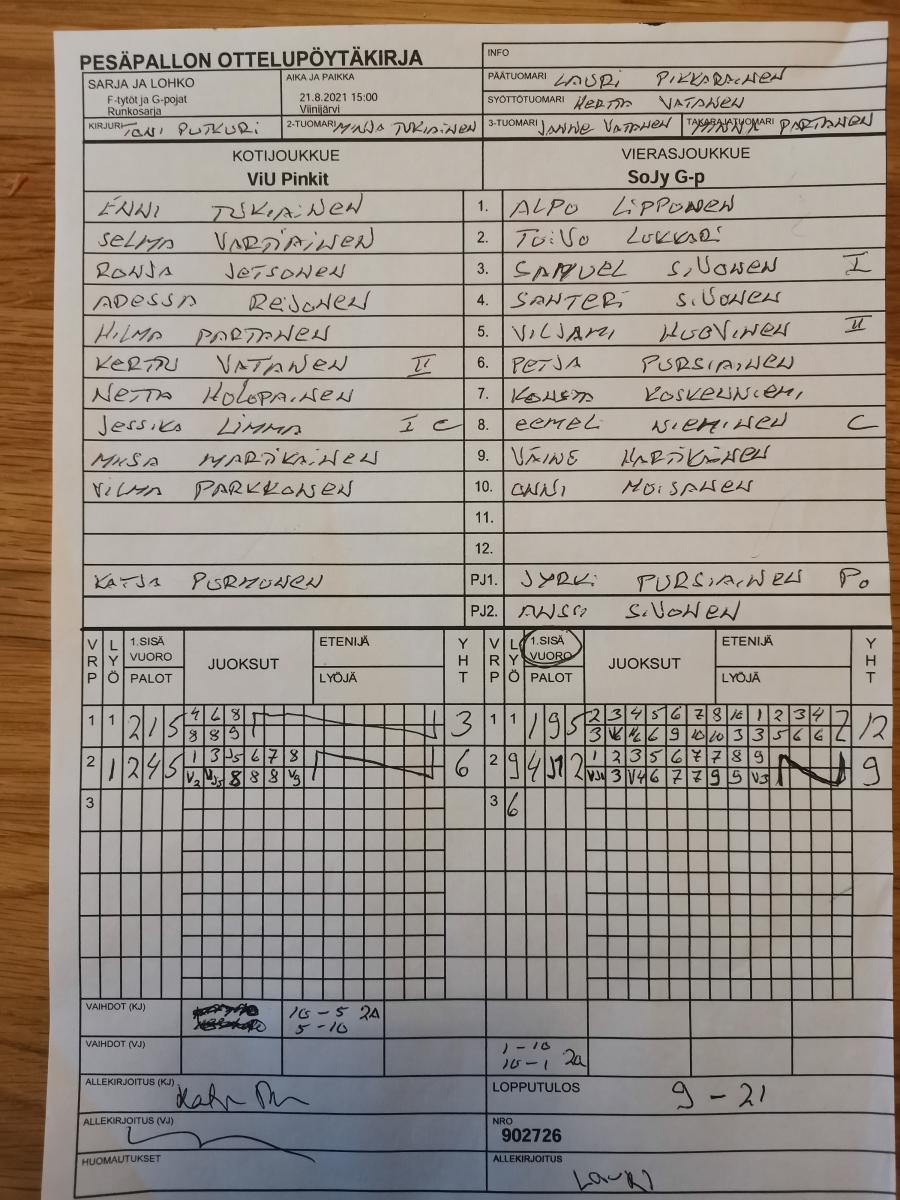 PESÄPALLON OTTELUPÖYTÄKIRJA
INFO
SARJA JA LOHKO
F-tytöt ja G-pojat
Runkosarja
AIKA JA PAIKKA
21.8.2021 15:00
Viinijärvi
PÄÄTUOMARI LAURI PIKKARAINEN
SYÖTTÖTUOMARI HERTTA VATANEN
KIRJURI TONI PUTKURI 2-TUOMARI MINJA TUKIAINEN 3-TUOMARI JANNE VATANEN TAKARAJATUOMARI MINNA PARTANEN
KOTIJOUKKUE VIERASJOUKKUE
ViU Pinkit SoJy G-p
ENNI TUKIAINEN 1. ALPO LIPPONEN
SELMA VARTIAINEN 2. TOIVO LUKKARI
RONJA JETSONEN 3. SAMUEL SIVONEN I
ADESSA REIJONEN 4. SANTERI SIVONEN
HILMA PARTANEN 5. VILJAMI HUOVINEN II
KERTTU VATANEN II 6. PETJA PURSIAINEN
NETTA HOLOPAINEN 7. KOSKENNIEMI
JESSIKA LIMMA I C 8. EEMEL NIEMINEN C
MARTIKAINEN 9. VÄINE MARTIKAINEN
VILMA PARKKONEN 10. ONNI MOISANEN
11.
12.
KATJA PURMONEN PJ1. JYRKI PURSIAINEN Po
PJ2. ANSSI SIVONEN
VRP LYÖ 1.SISÄ VUORO PALOT JUOKSUT ETENIJÄ LYÖJÄ YHT VRP LYÖ 1.SISÄ VUORO PALOT JUOKSUT ETENIJÄ LYÖJÄ YHT
1 1 2 1 5 4 6 8 3 1 1 1 9 5 2 3 4 5 6 7 8 10 1 2 3 4 2 12
8 8 9 3 6 9 10 10 3 3 5 6 6
2 1 2 4 5 1 3 5 6 7 8 6 2 9 4 2 1 2 3 5 6 7 7 8 9 9
8 8 8 V9 3 V4 6 7 7 9 9 V3
3 3 6
VAIHDOT (KJ) 10-5 2A
5-10
VAIHDOT (VJ) 1-10
10-1 2a
ALLEKIRJOITUS (KJ) LOPPUTULOS 9-21
ALLEKIRJOITUS (VJ) NRO
902726
HUOMAUTUKSET ALLEKIRJOITUS
LAURI